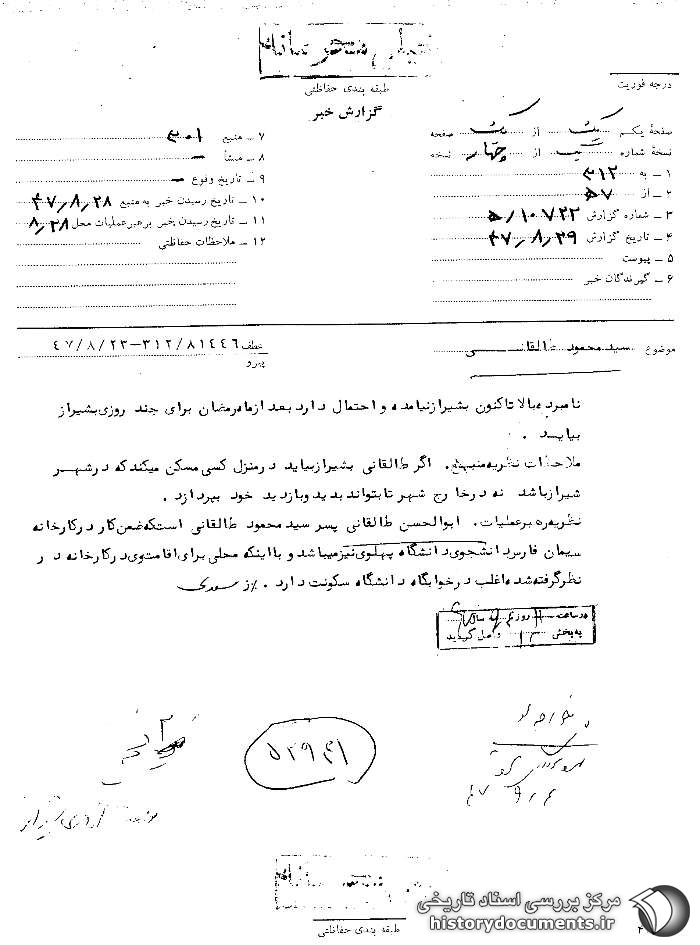 خیلی محرمانه
طبقه بندی حفاظتی
درجه فوریت
گزارش خبر
صفحهٔ یکم یک از یک صفحه
نسخهٔ شماره یک از چهار نسخه
۱ ـ به ۳۱۲
۲ ـ از ۵۷
۳ ـ شماره گزارش ۵/۱۰۷۲۲
۴ ـ تاریخ گزارش ۴۷٫۸٫۲۹
۵ ـ پیوست
۶ ـ گیرندگان خبر
۷ ـ منبع ۳۰۱
۸ ـ منشأ ــ
۹ ـ تاریخ وقوع ــ
۱۰ ـ تاریخ رسیدن خبر به منبع ۴۷٫۸٫۲۸
۱۱ ـ تاریخ رسیدن خبر برهبر عملیات محل ۸٫۲۸
۱۲ ـ ملاحظات حفاظتی
موضوع سید محمود طالقانــــی
عطف پیرو ۳۱۲/۸۱۴۴۶–۴۷/۸/۲۳
نامبرده بالا تاکنون بشیراز نیامده و احتمال دارد بعد از ماه رمضان برای چند روزی بشیراز
بیایـد .
ملاحظات نظریه منبع. اگر طالقانی بشیراز بیاید در منزل کسی مسکن میکند که در شهـر
شیراز باشد نه در خارج شهر تا بتواند بدید و بازدید خود بپردازد .
نظریه رهبر عملیات. ابوالحسن طالقانی پسر سید محمود طالقانی است که ضمن کار در کارخانه
سیمان فارس دانشجوی دانشگاه پهلوی نیز میباشد و با اینکه محلی برای اقامت وی در کارخانه در
نظر گرفته شده اغلب در خوابگاه دانشگاه سکونت دارد .
در ساعت روز سال
به بخش واصل گردید
مرکز بررسی اسناد تاریخی
historydocuments.ir
طبقه بندی حفاظتی